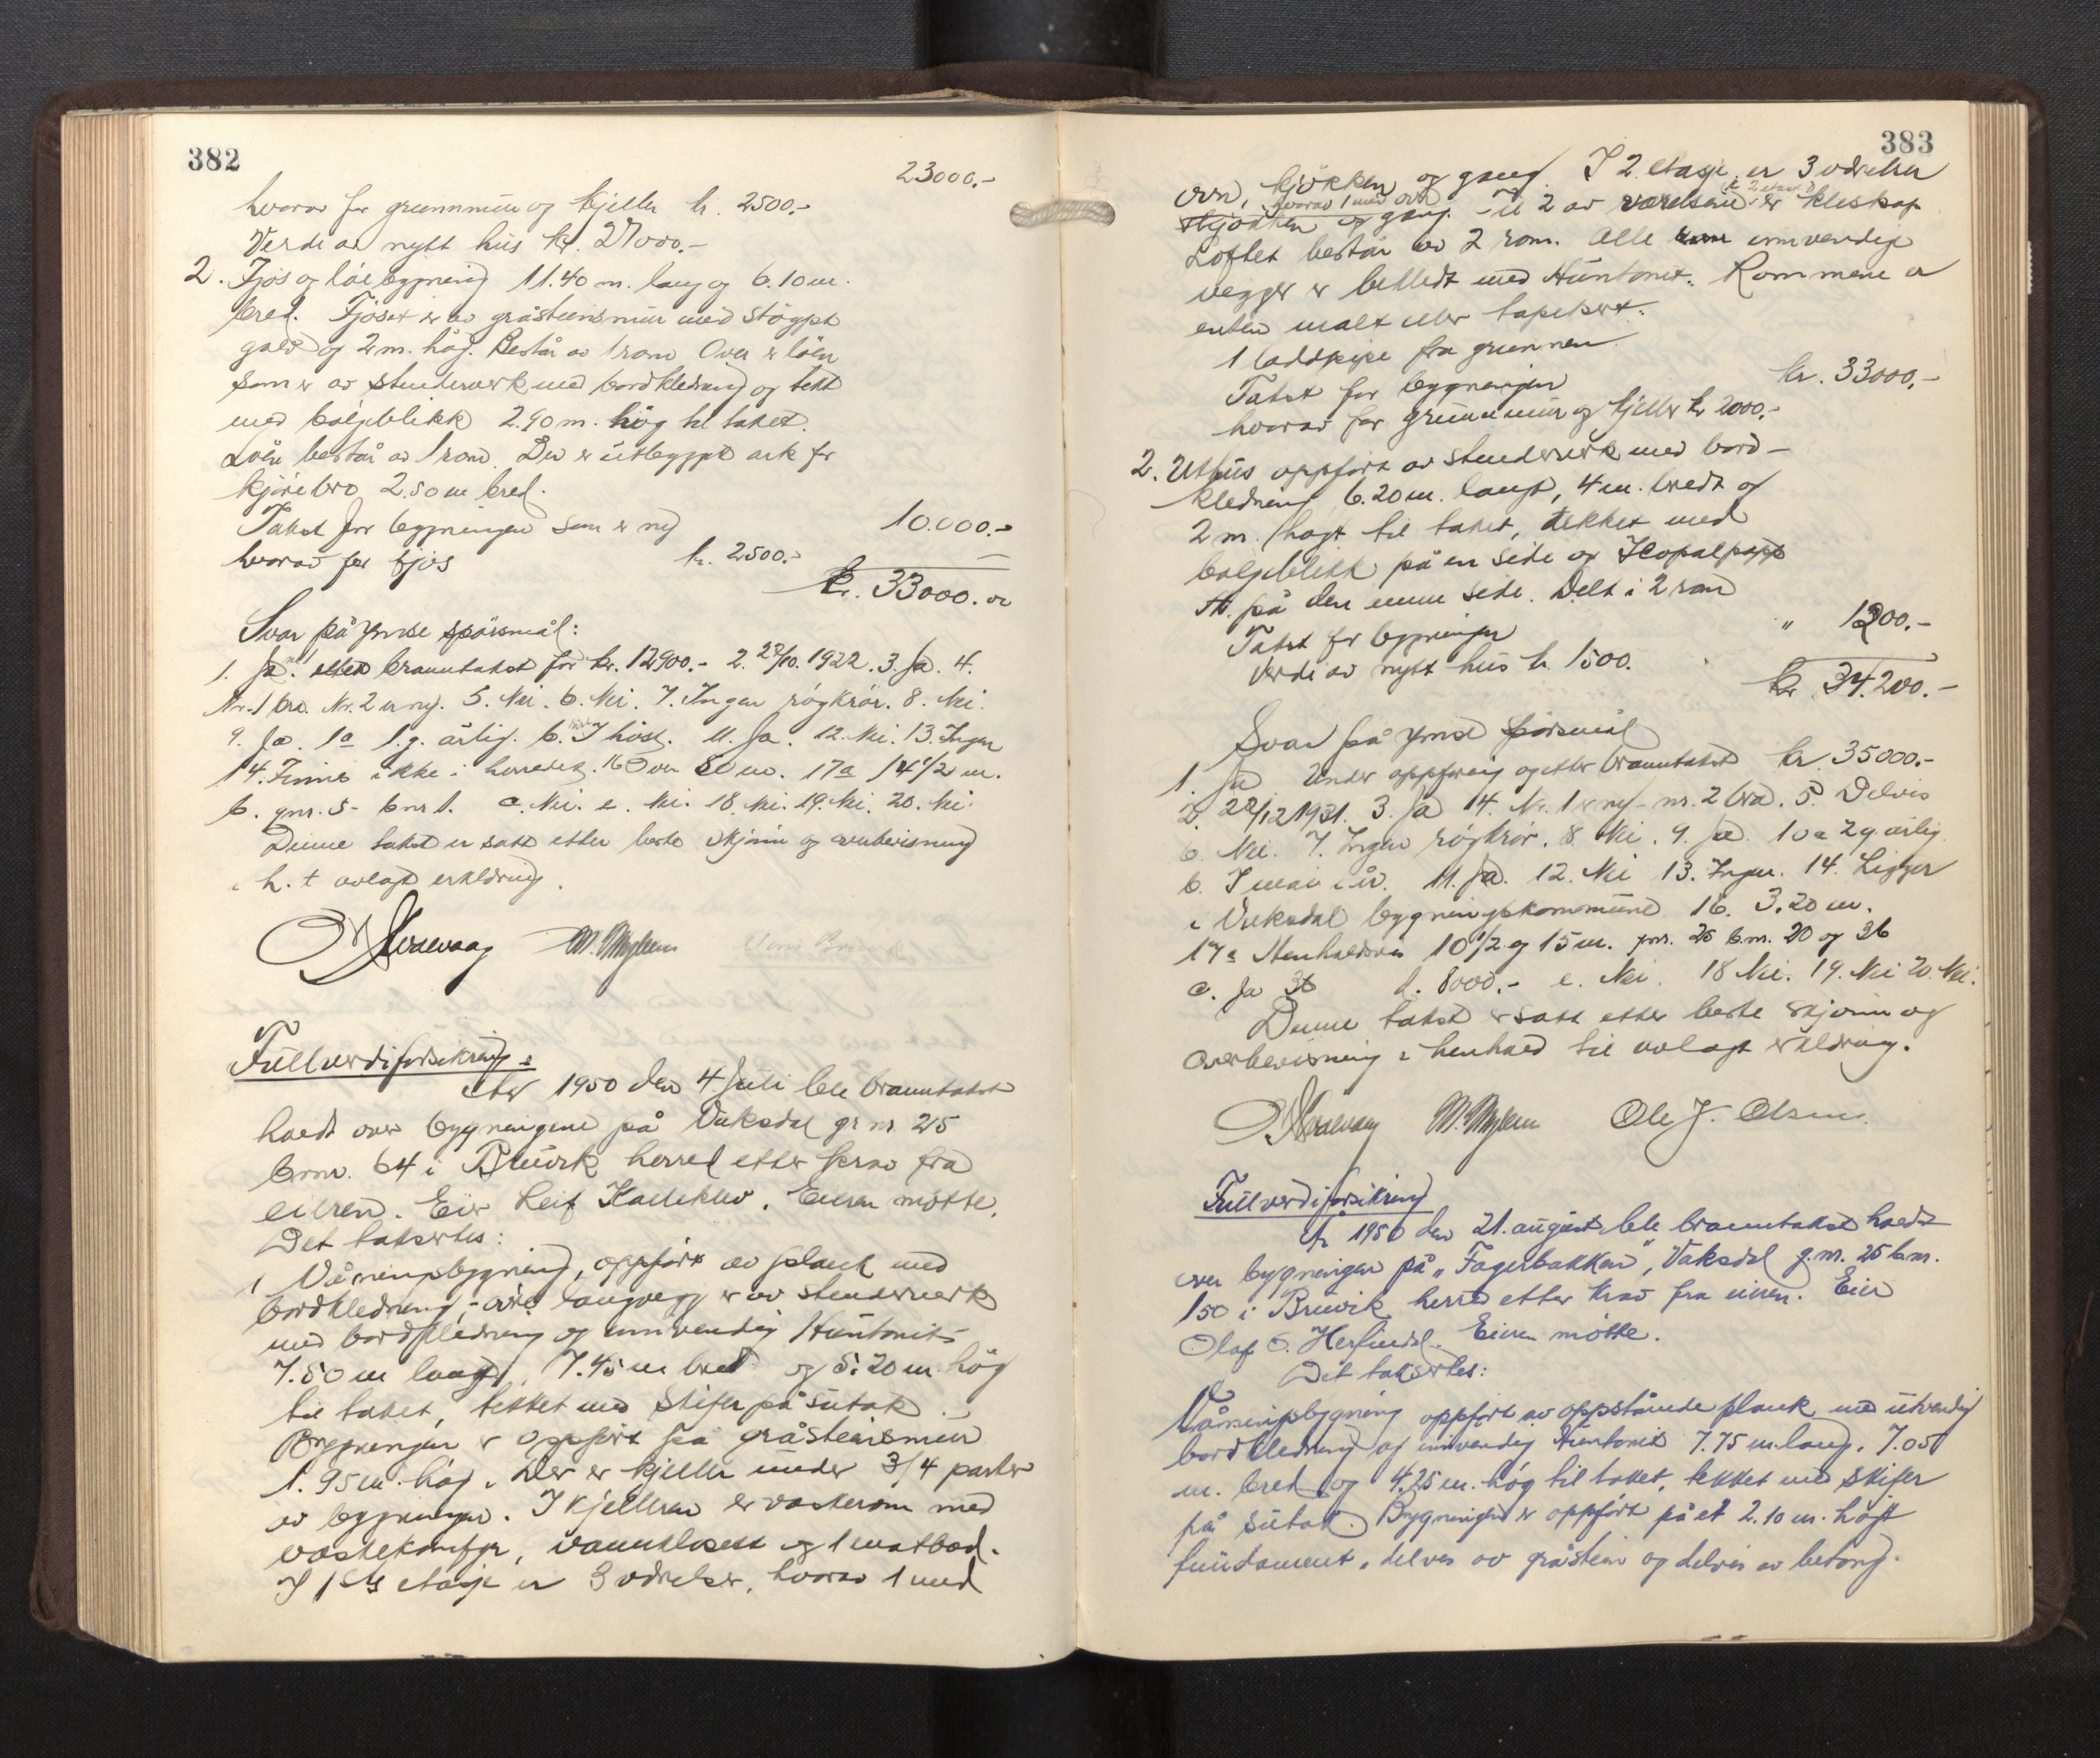 382
23000.-
hvorav for grunnmur og kjeller kr. 2500.-
Verdi av nytt hus kr. 27000.-
2. Fjøs og løebygning 11.40 m. lang og 6.10 m.
bred. Fjøset er av gråsteinsmur med støypt
golv og 2 m. høg. Består av 1 rom. Over er løen
som er av stenderverk med bordkledning og tekt
med bølgeblikk 2.90 m. høg til taket.
Løen består av 1 rom. Der er utbyggt ark for
kjørebro 2.50 m bred.
Takst for bygningen som er ny 10.000.-
hvorav for fjøs kr. 2500.-
kr. 33000.00
Svar på ymse spørsmål:
1. Ja. branntakst for kr. 12900.- 2. 27/10. 1922. 3. Ja. 4.
Nr. 1 bra. Nr. 2 er ny. 5. Nei. 6. Nei. 7. Ingen røykrør. 8. Nei.
9. Ja. 1a 1.g. årlig. b. I høst. 11. Ja. 12. Nei. 13. Ingen
14. Finnes ikke i herredet. 16 Over 80 m. 17a 14 1/2 m.
b. gnr. 5 - bnr 1. c. Nei. e. Nei. 18. Nei. 19. Nei. 20. Nei.
Denne takst er satt etter beste skjønn og overbevisning
i h. t avlagt erklæring.
M. Myhren
Fullverdiforsikring:
År 1950 den 4 juli ble branntakst
holdt over bygningene på Vaksdal gr nr. 25
bnr. 64 i Bruvik herred etter krav fra
eieren. Eier Leif Kallekleiv. Eieren møtte.
Det takseres:
1 Våningsbygning, oppført av plank med
bordkledning, - øvre langvegg er av stenderverk
med bordkledning og innvendig Huntonit
7.50 m lang, 7.45 m bred og 5.20 m. høg
til taket, tekket med skifer på sutak.
Bygningen er oppført på gråsteinsmur
1.95 m. høg. Der er kjeller under 3/4 parter
av bygningen. I kjelleren er vaskerom med
vaskekomfyr, vannklosett og 1 matbod.
I 1ste etasje er 3 værelser, hvorav 1 med
383
ovn, kjøkken og gang. I 2. etasje er 3 værelser
hvorav 1 med ovn
kjøkken og gang. - Til 2 av værelsene (i 2 etasje) er kleskap
Loftet består av 2 rom. Alle innvendige
vegger er bekledt med Huntonit. Rommene er
enten malt eller tapetsert.
1 loddpipe fra grunnen.
Takst for bygningen kr. 33000.-
hvorav for grunnmur og kjeller kr 2000.-
2. Uthus oppført av stenderverk med bord-
kledning, 6.20 m. langt, 4 m. bredt og
2 m. høgt til taket, tekket med
bølgeblikk på en side og Icopalpapp
på den ene side. Delt i 2 rom
Takst for bygningen " 1200.-
Verdi av nytt hus kr. 1500.
kr 34.200.-
Svar på ymse spørsmål
1. Ja Under oppføring og etter branntakst kr. 35000.-
2. 28/12 1931. 3. Ja 14. Nr. 1 er ny - nr. 2 bra. 5. Delvis
6. Nei. 7. Ingen røykrør. 8. Nei. 9. Ja. 10a 2 g. årlig
b. I mai i år. 11. Ja. 12. Nei 13. Ingen. 14. Ligger
i Vaksdal bygningskommune 16. 3.20 m.
17a Henholdsvis 10 1/2 og 15 m. gnr. 25 b.nr. 20 og 36
c. Ja 36 d. 8000.- e. Nei. 18 Nei. 19. Nei 20. Nei.
Denne takst er satt etter beste skjønn og
overbevisning i henhold til avlagt erklæring.
M. Myhren Ole J. Olsen.
Fullverdiforsikring
År 1950 den 21. august ble branntakst holdt
over bygningen på "Fagerbakken", Vaksdal g.nr. 25 b.nr.
150 i Bruvik herred etter krav fra eieren. Eier
Olaf O. Herfindal. Eieren møtte.
Det takseres:
Våningsbygning oppført av oppstående plank med utvendig
bordkledning og innvendig Huntonit 7.75 m. lang. 7.05
m. bred og 4.25 m. høg til taket, tekket med skifer
på sutak. Bygningen er oppført på et 2.10 m. høgt
fundament, delves av gråstein og delvis av betong.